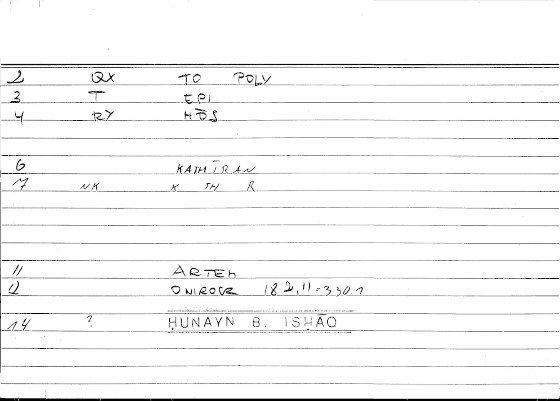 2 QX TO POLY
3 T EPI
4 RY HŌS
6 KATHĪRAN
7 NK K TH R
11 ARTEM
12 ONIROCR 182,11=330.1
14 ? ḤUNAYN B. ISḤĀQ